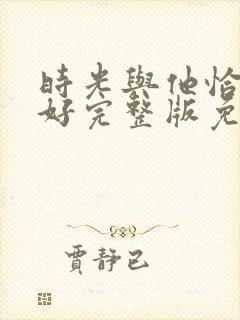 時光與他恰
好完整版免
賈靜已